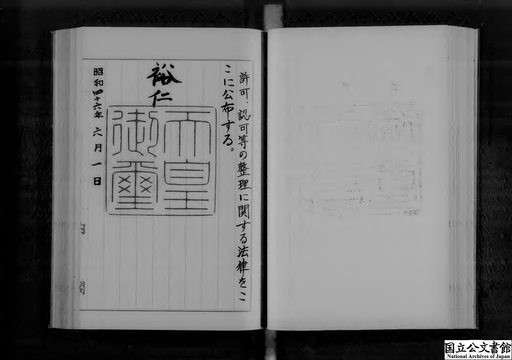 許可、認可等の整理に関する法律をこ
こに公布する。
裕仁
天皇
御璽
昭和四十六年六月一日
国立公文書館
National Archives of Japan